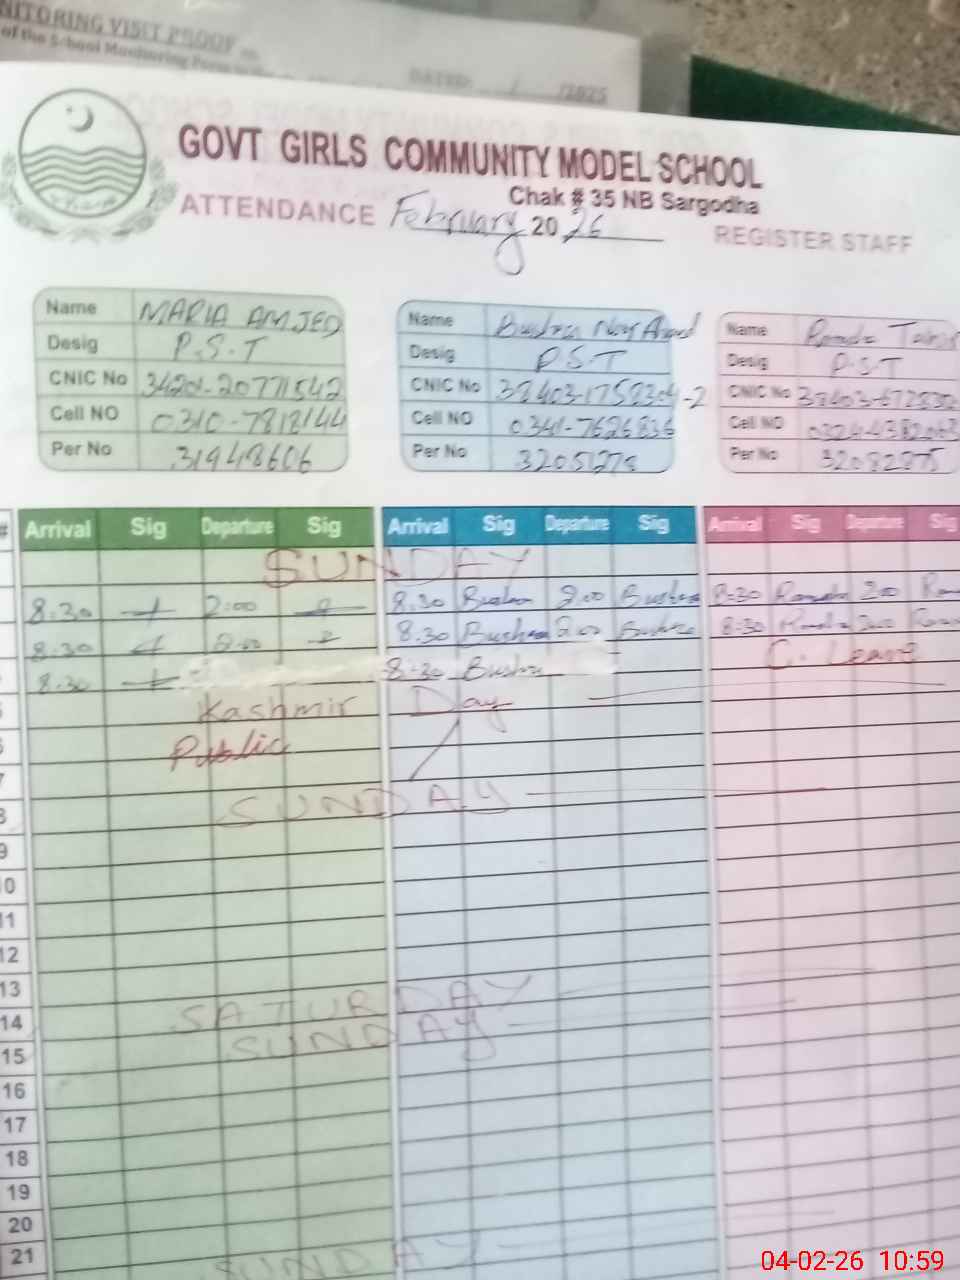 NITORING VISIT PROOF
of the School Monitoring Form
DATED: / /2025
GOVT GIRLS COMMUNITY MODEL SCHOOL
Chak # 35 NB Sargodha
ATTENDANCE February 2026 REGISTER STAFF
Name MARIA AMJED
Desig P.S.T
CNIC No 34201-20771542
Cell NO 0310-7818144
Per No 31948606
Name Bushra Noor Ahmad
Desig P.S.T
CNIC No 38403-1758304-2
Cell NO 0341-7626836
Per No 32051278
Name
Desig P.S.T
CNIC No
Cell NO
Per No 32082875
# Arrival Sig Departure Sig Arrival Sig Departure Sig Arrival Sig Departure Sig
SUNDAY
8.30 2:00 8.30 Bushra 2.00 Bushra 8-30 2.00
8:30 2:00 8.30 Bushra 2.00 Bushra 8:30
8.30 8-30 Bushra C. Leave
5 Kashmir Day
6 Public
7
8 SUNDAY
9
10
11
12
13
14 SATURDAY
15 SUNDAY
16
17
18
19
20
21
SUNDAY
04-02-26 10:59